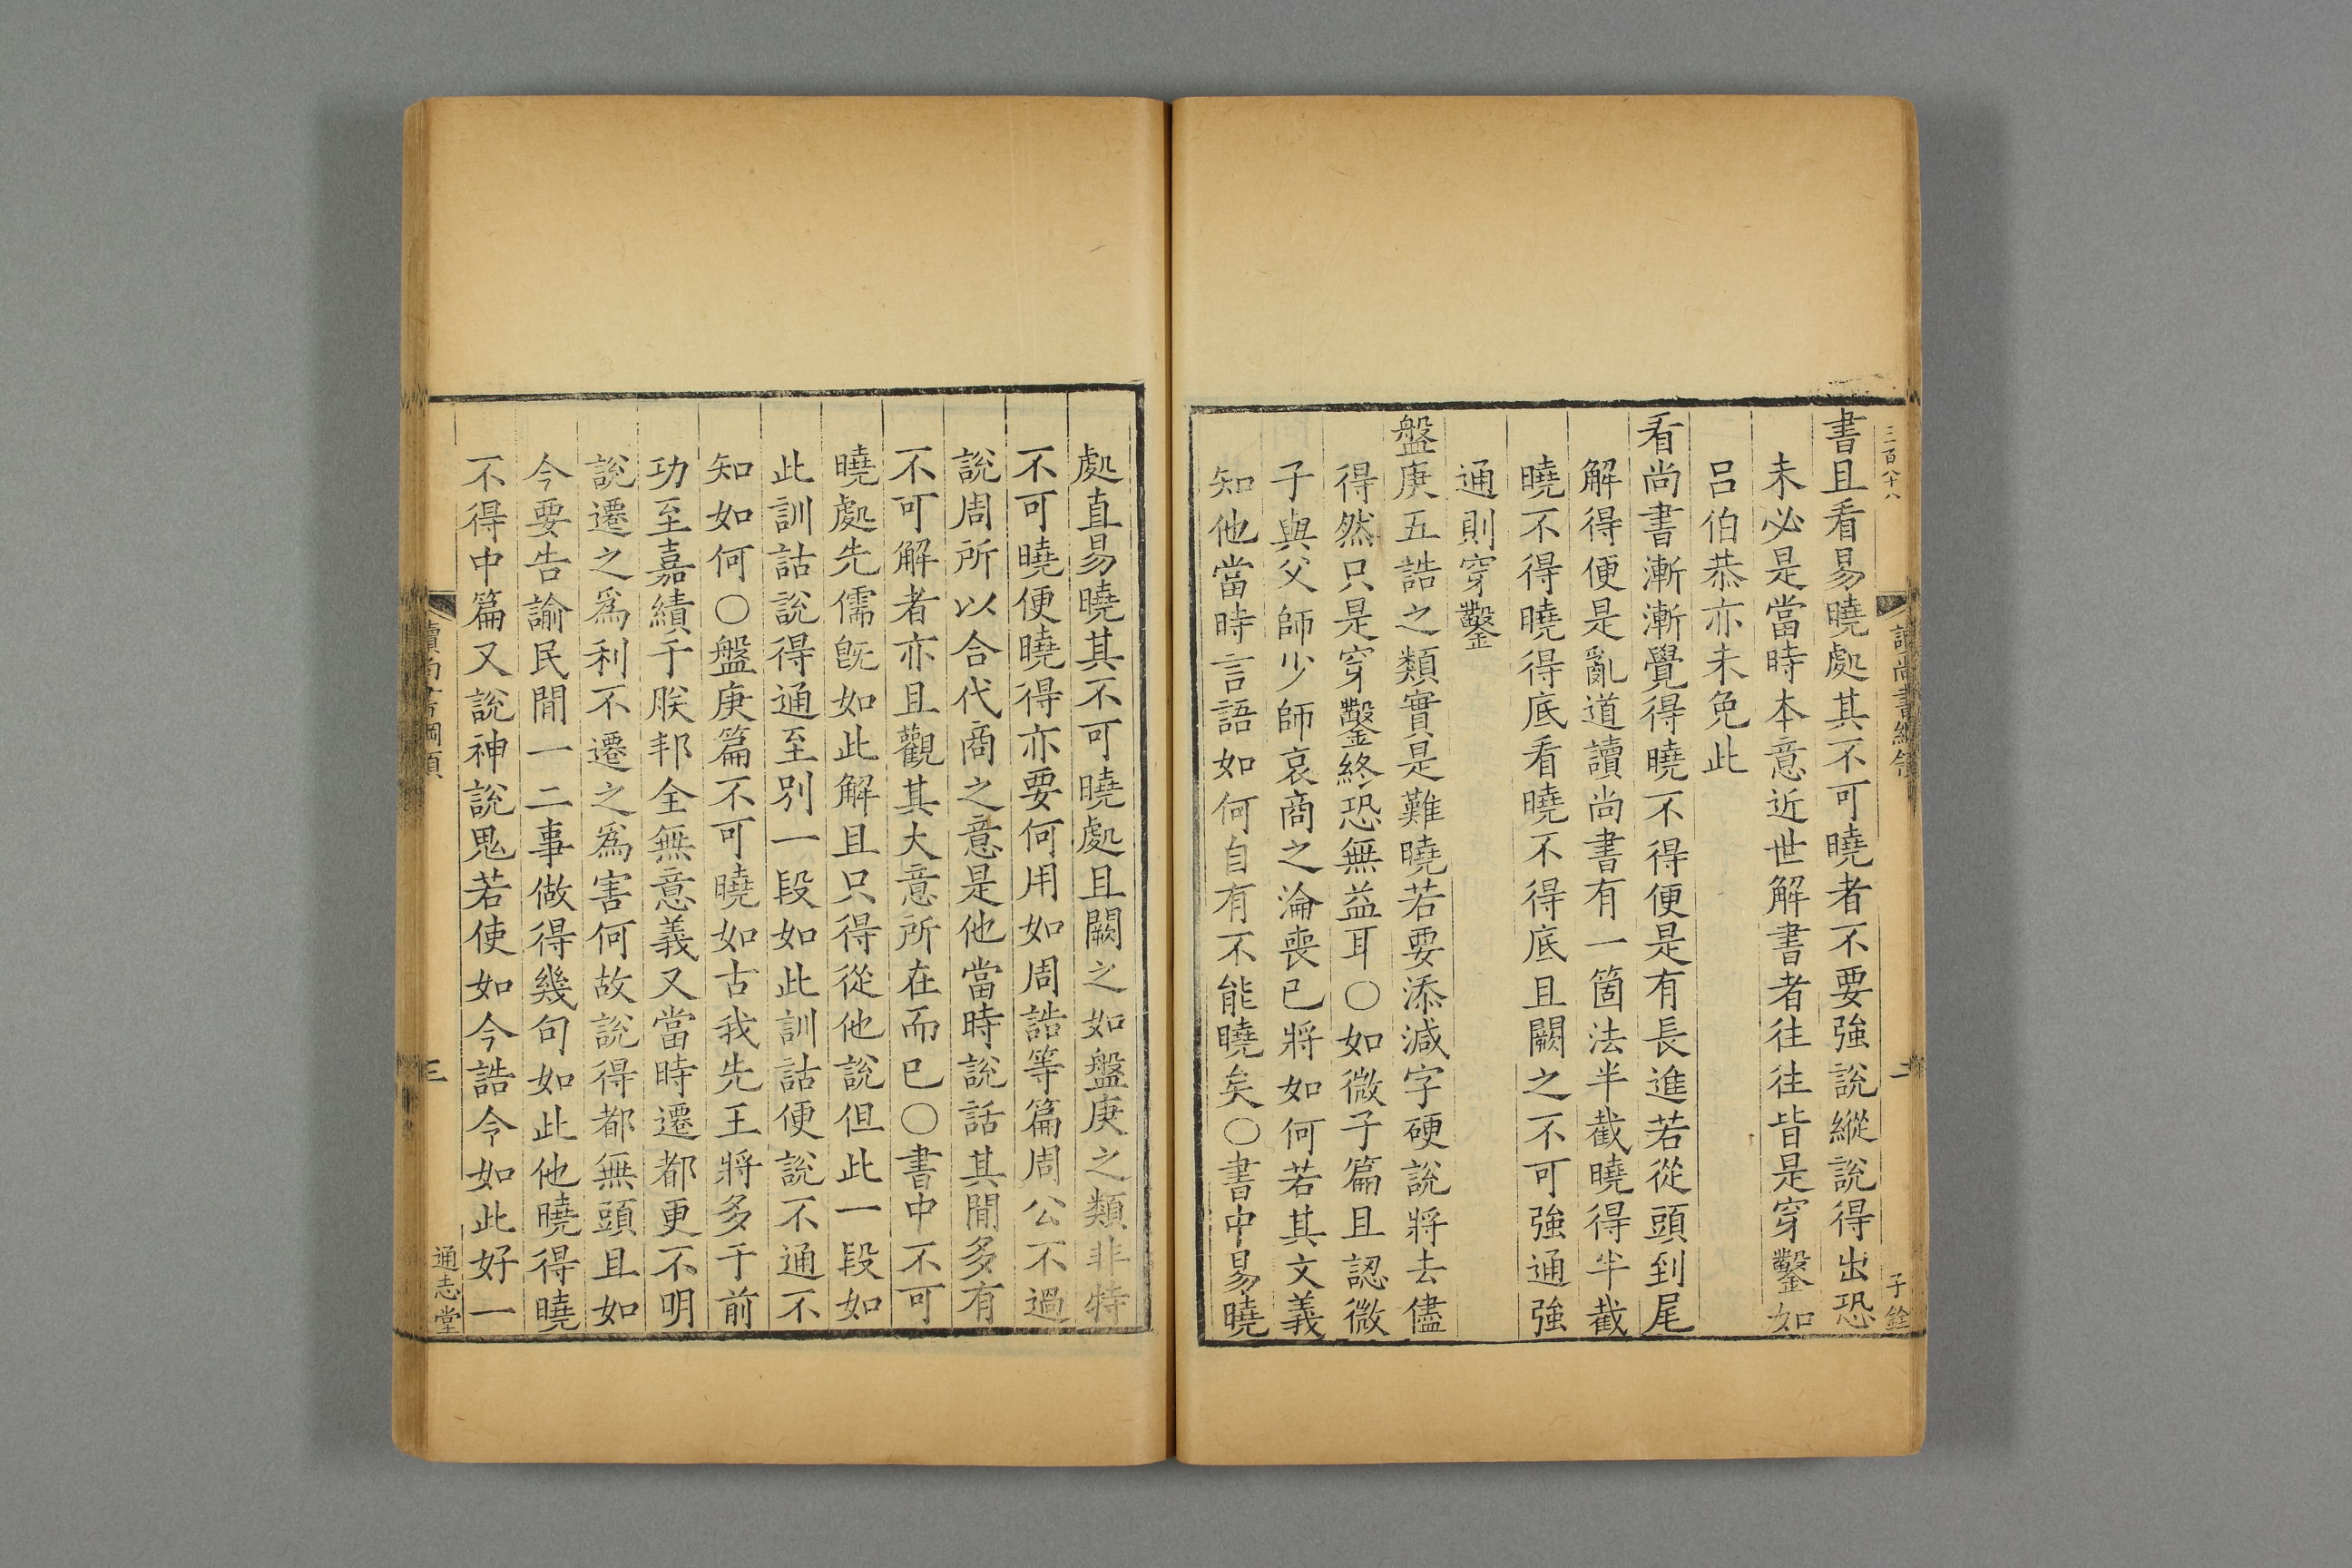 三百八十八
讀尚書綱領
二
子銓
書且看易曉處其不可曉者不要強說縱說得出恐
未必是當時本意近世解書者往往皆是穿鑿如
呂伯恭亦未免此
看尚書漸漸覺得曉不得便是有長進若從頭到尾
解得便是亂道讀尚書有一箇法半截曉得半截
曉不得曉得底看曉不得底且闕之不可強通強
通則穿鑿
盤庚五誥之類實是難曉若要添減字硬說將去儘
得然只是穿鑿終恐無益耳○如微子篇且認微
子與父師少師哀商之淪喪已將如何若其文義
知他當時言語如何自有不能曉矣○書中易曉
處直易曉其不可曉處且闕之如盤庚之類非特
不可曉便曉得亦要何用如周誥等篇周公不過
說周所以合代商之意是他當時說話其間多有
不可解者亦且觀其大意所在而已○書中不可
曉處先儒旣如此解且只得從他說但此一段如
此訓詁說得通至別一段如此訓詁便說不通不
知如何○盤庚篇不可曉如古我先王將多于前
功至嘉績于朕邦全無意義又當時遷都更不明
說遷之爲利不遷之爲害何故說得都無頭且如
今要告諭民間一二事做得幾句如此他曉得曉
不得中篇又說神說鬼若使如今誥令如此好一
讀尚書綱領
三
通志堂